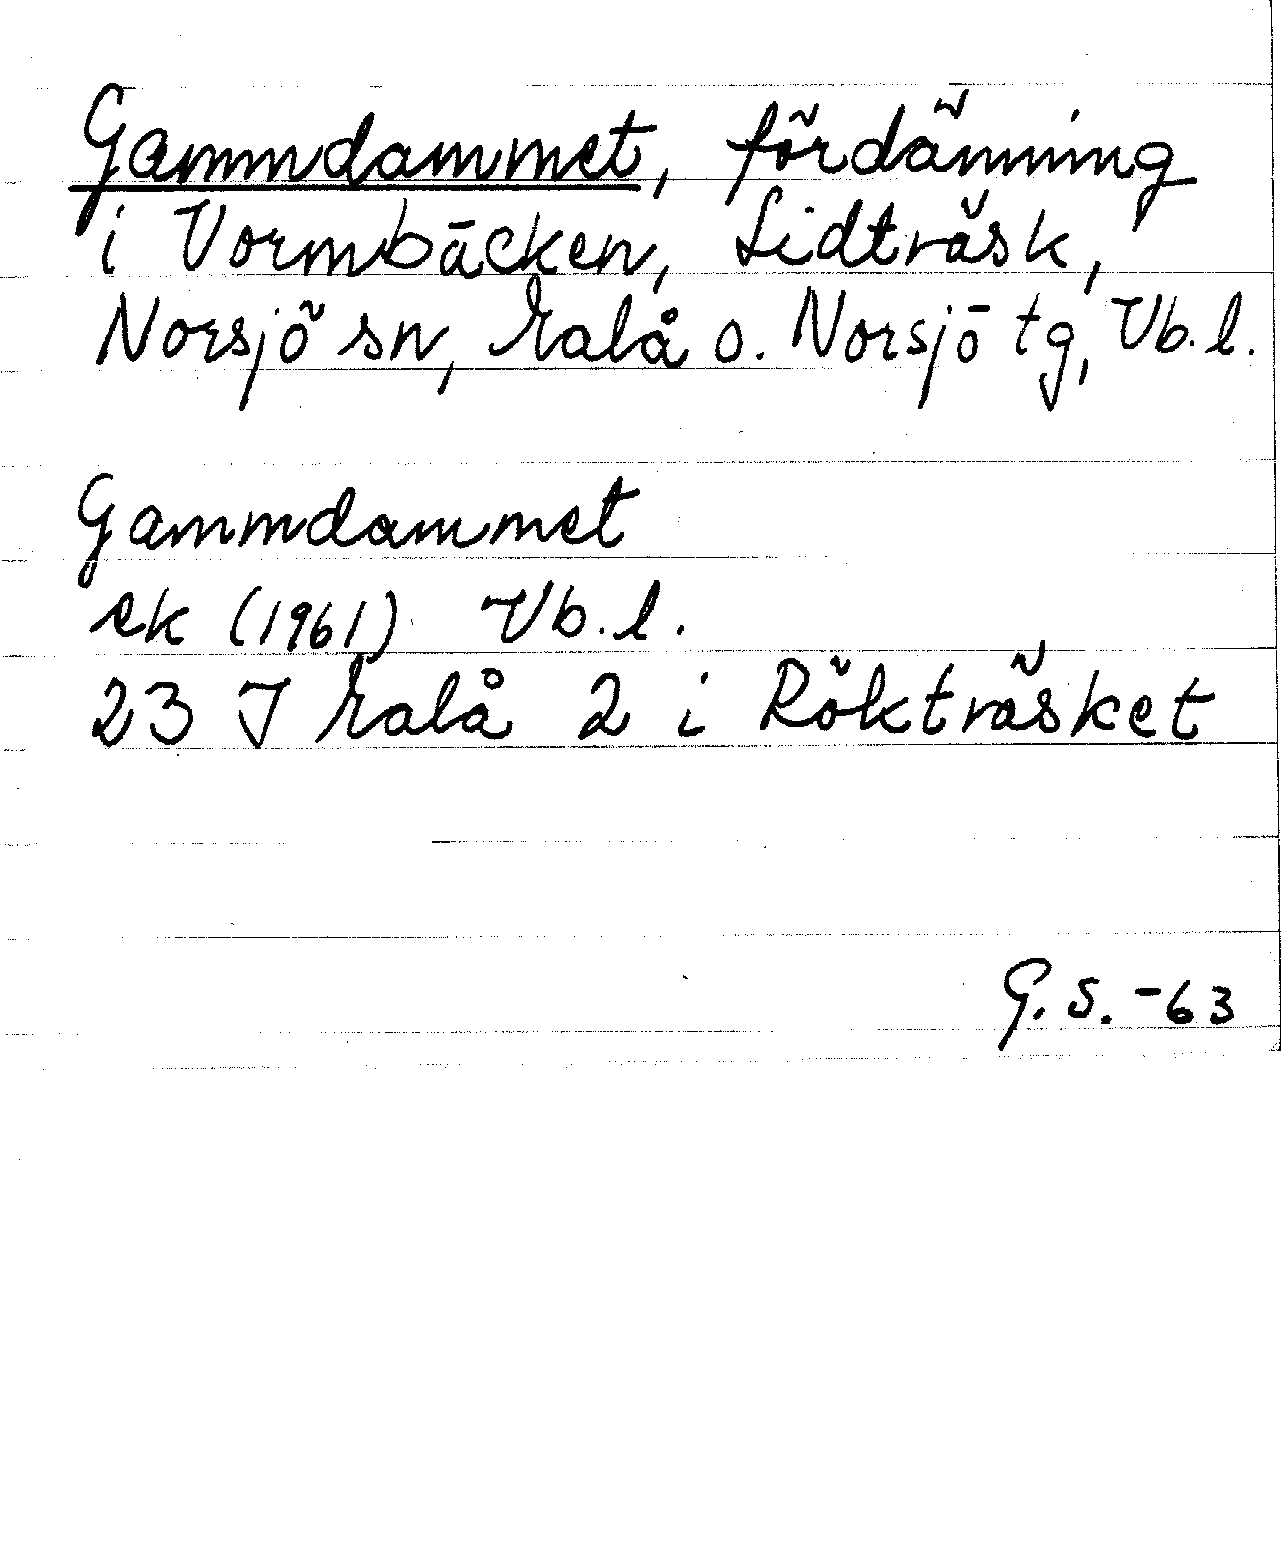 Gammdammet, fördämning
i Vormbäcken, Lidträsk,
Norsjö sn, Malå o. Norsjö tg, Vb. l.
Gammdammet
ek (1961) Vb. l.
23 J Malå 2 i Rökträsket
G. S. -63